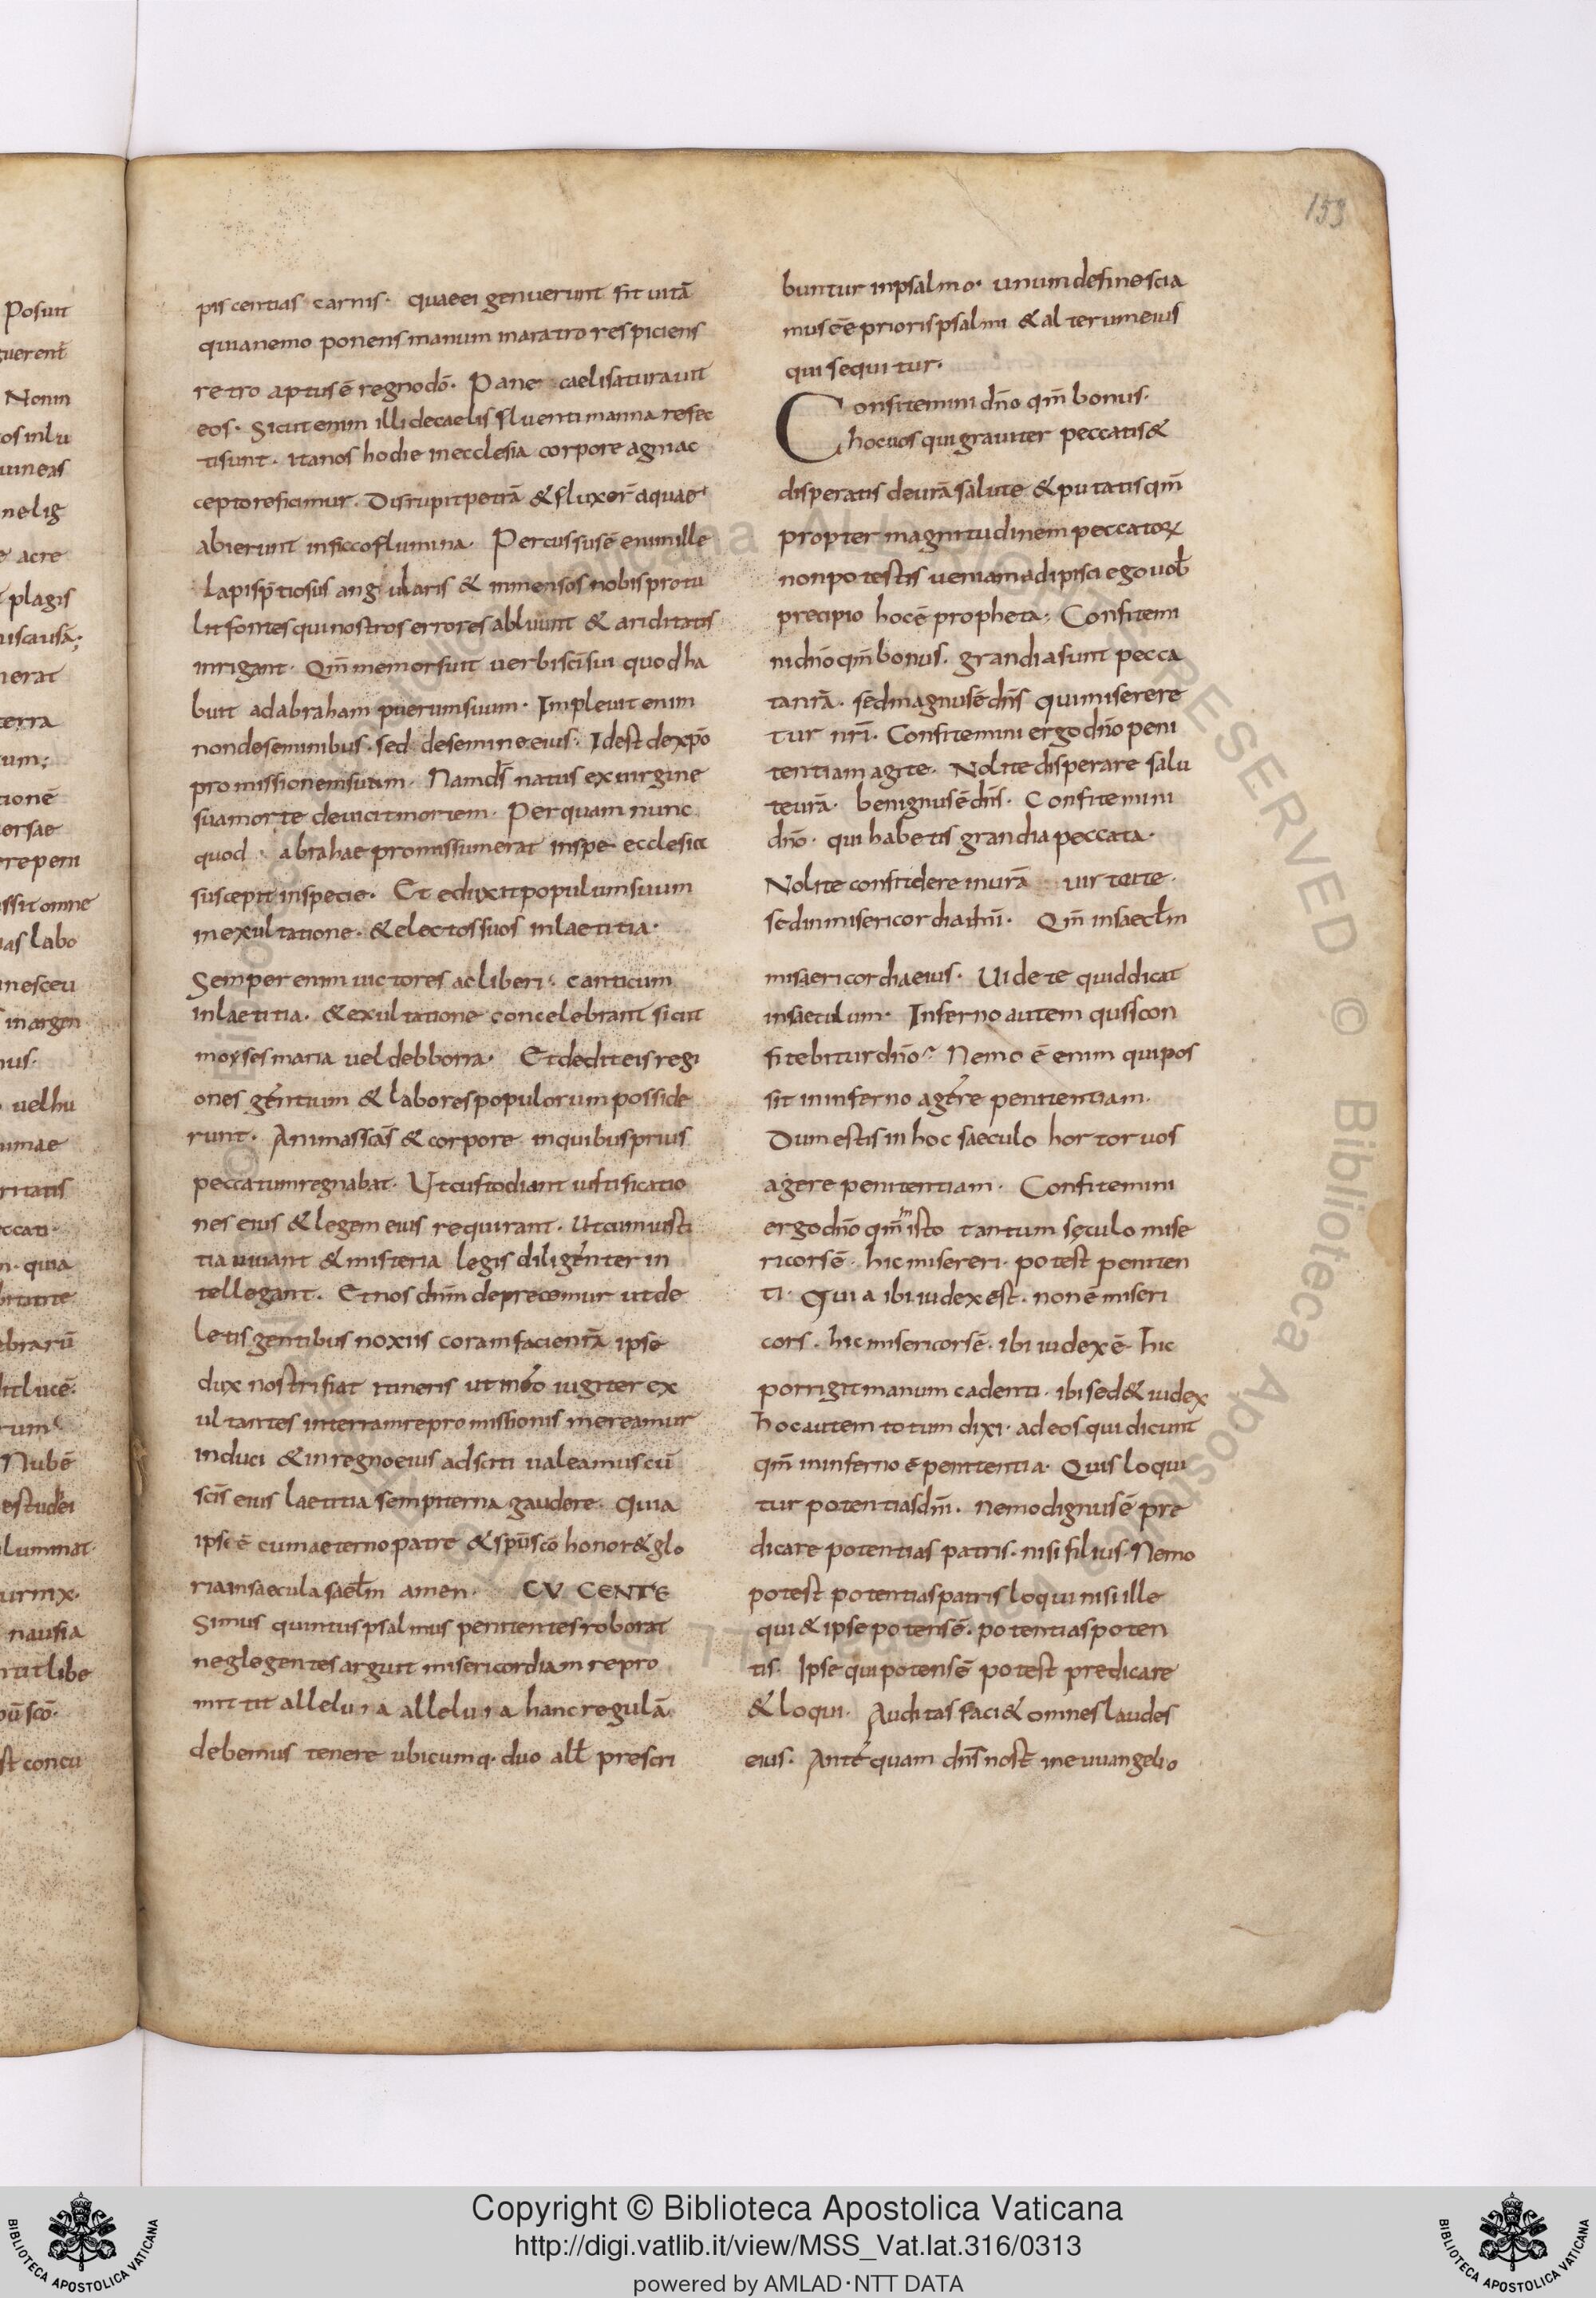 153
piscentias carnis. quae ei genuerunt sit uitā
quia nemo ponens manum in aratro respiciens
retro aptus ē regno dō. Pane caeli saturauit
eos. Sicut enim illi de caelis fluenti manna refec
ti sunt. ita nos hodie in ecclesia corpore agni ac
cepto reficimur. Disrupit petrā & fluxer̄ aquae
abierunt in sicco flumina. Percussus ē enim ille
lapis p̄tiosus angularis & inmensos nobis protu
lit fontes qui nostros errores abluunt & ariditatis
inrigant. Qm̄ memor fuit uerbi sc̄i sui quod ha
buit ad abraham puerum suum. Impleuit enim
non de seminibus. sed de semine eius. Idest de xp̄o
promissionem suam. Nam ds̄ natus ex uirgine
sua morte deuicit mortem. Per quam nunc
quod abrahae promissum erat in spe ecclesia
suscepit in specie. Et eduxit populum suum
in exultatione. & electos suos in laetitia.
Semper enim uictores ac liberi. canticum
in laetitia. & exultatione concelebrant sicut
moyses maria uel debborra. Et dedit eis regi
ones gentium & labores populorum posside
runt. Animas sc̄as & corpore in quibus prius
peccatum regnabat. Ut custodiant iustificatio
nes eius & legem eius requirant. Ut cum iusti
tia uiuant & misteria legis diligenter in
tellegant. Et nos dnm̄ deprecemur ut de
letis gentibus noxiis coram facie nr̄ā ipse
dux nostri fiat itineris ut in eo iugiter ex
ultantes in terram repromissionis mereamur
induci & in regno eius adsciti ualeamus cū
sc̄is eius laetitia sempiterna gaudere. Quia
ipsi ē cum aeterno patre & spū sc̄o honor & glo
ria in saecula saecl̄m amen. CV CENTE
Simus quintus psalmus penitentes roborat
neglegentes arguit misericordiam repro
mittit alleluia alleluia hanc regulā
debemus tenere ubicumq. duo all̄ prescri
buntur in psalmo. unum de fine scia
mus eē prioris psalmi & alterum eius
qui sequitur.
Confitemini dn̄o qm̄ bonus.
hoc uos qui grauiter peccatis &
disperatis de ur̄ā salute & putatis qm̄
propter magnitudinem peccatoꝝ
non potestis ueniam adipisci ego uob̄
precipio hoc ē propheta. Confitemi
ni dn̄o qm̄ bonus. grandia sunt pecca
ta nr̄ā. sed magnus ē dn̄s qui miserere
tur nr̄i. Confitemini ergo dn̄o peni
tentiam agite. Nolite disperare salu
te ur̄ā. benignus ē dn̄s. Confitemini
dn̄o. qui habetis grandia peccata.
Nolite confidere in ur̄ā uirtute.
sed in misericordia dn̄i. Qm̄ in saecl̄m
misaericordia eius. Uidete quid dicat
in saeculum. Inferno autem quis con
fitebitur dn̄o? Nemo ē enim qui pos
sit in inferno agere penitentiam.
Dum estis in hoc saeculo hortor uos
agere penitentiam. Confitemini
ergo dn̄o qm̄ in isto tantum sęculo mise
ricors ē. hic misereri. potest peniten
ti. Quia ibi iudex est. non ē miseri
cors. hic misericors ē. ibi iudex ē. hic
porrigit manum cadenti. ibi sed & iudex
hoc autem totum dixi. ad eos qui dicunt
qm̄ in inferno ē penitentia. Quis loqui
tur potentias dn̄i. nemo dignus ē pre
dicare potentias patris. nisi filius. Nemo
potest potentias patris loqui nisi ille
qui & ipse potens ē. potentias poten
tis. Ipse qui potens ē potest predicare
& loqui. Auditas faci& omnes laudes
eius. Ante quam dn̄s nost̄ in euuangelio
Copyright © Biblioteca Apostolica Vaticana
http://digi.vatlib.it/view/MSS_Vat.lat.316/0313
powered by AMLAD·NTT DATA